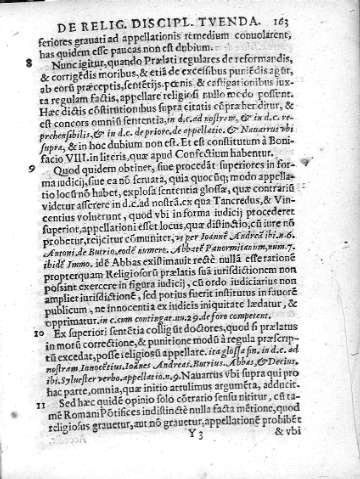 DE RELIG. DISCIPL. TVENDA. 163
feriores grauati ad appellationis remedium conuolarent,
has quidem esse paucas non est dubium.
8 Nunc igitur, quando Prælati regulares de reformandis,
& corrigẽdis moribus, & etiã de excessibus puniẽdis agũt,
ab eorũ præceptis, sentẽtijs pœnis & castigationibus iux-
ta regulam factis, appellare religiosi nullo modo possunt.
Hæc dictis cõstitutionibus supra citatis cõpræhẽditur, &
est concors omniũ sententia, in d.c.ad nostram, & in d.c. re-
prehensibilis, & in d.c. de priore, de appellatio. & Nauarrus vbi
supra, & in hoc dubium non est. Et est constitutum à Boni-
facio VIII. in literis, quæ apud Confectium habentur.
9 Quod quidem obtinet, siue procedãt superiores in for-
ma iudicij, siue ea nõ seruata, quia quocũq; modo appella-
tio locũ nõ habet, explosa sententia glossæ, quæ contrariũ
videtur asserere in d.c.ad nostrã.ex qua Tancredus, & Vin-
centius voluerunt, quod vbi in forma iudicij procederet
superior, appellationi esset locus, quæ distinctio, cũ iure nõ
probetur, reijcitur cõmuniter, vt per Ioannẽ Andreã ibi.n.6.
Antoni. de Butrio, eodẽ numero. Abbatẽ Panormitanum, num.7.
ibidẽ Immo. idẽ Abbas existimauit rectè nullã esse rationẽ
propterquam Religiosorũ prælatis suã iurisdictionem non
possint exercere in figura iudicij, cũ ordo iudiciarius non
ampliet iurisdictionẽ, sed potius fuerit institutus in fauorẽ
publicum, ne innocentia ex iudicis iniquitate lædatur, &
opprimatur. in c.cum contingat.nu.29.de foro competent.
10 Ex superiori sentẽtia colligũt doctores, quod si prælatus
in morũ correctione, & punitione modũ à regula præscrip-
tũ excedat, posse religiosũ appellare. ita glossa fin. in d.c. ad
nostram Innocentius. Ioãnes Andreas, Butrius. Abbas, & Decius,
ibi. Syluester verbo.appellatio.n.9. Nauarrus vbi supra qui pro
hac parte, omnia, quæ initio attulimus argumẽta, adducit.
11 Sed hæc quidẽ opinio solo cõtrario sensu nititur, est ta-
mẽ Romani Põtifices indistinctè nulla facta mẽtione, quod
religiosus grauetur, aut nõ grauetur, appellationẽ prohibẽt
Y 3 & vbi